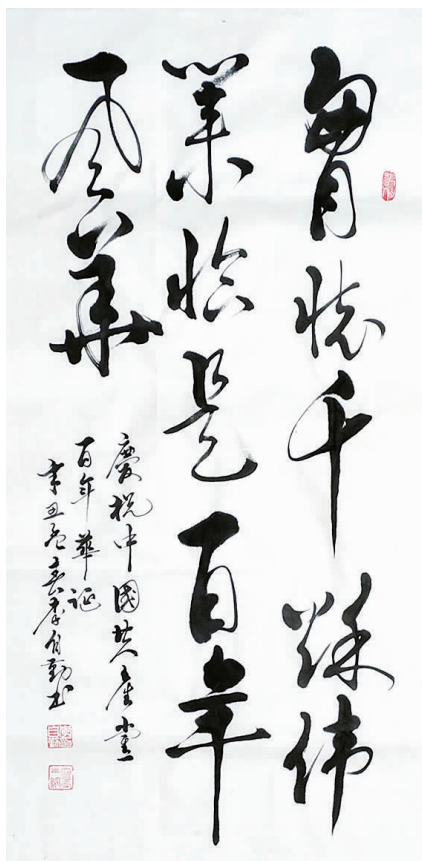 胷怀千秋伟
业恰是百年
风华
慶祝中國共產党
百年華诞
辛丑孟春李自勤书